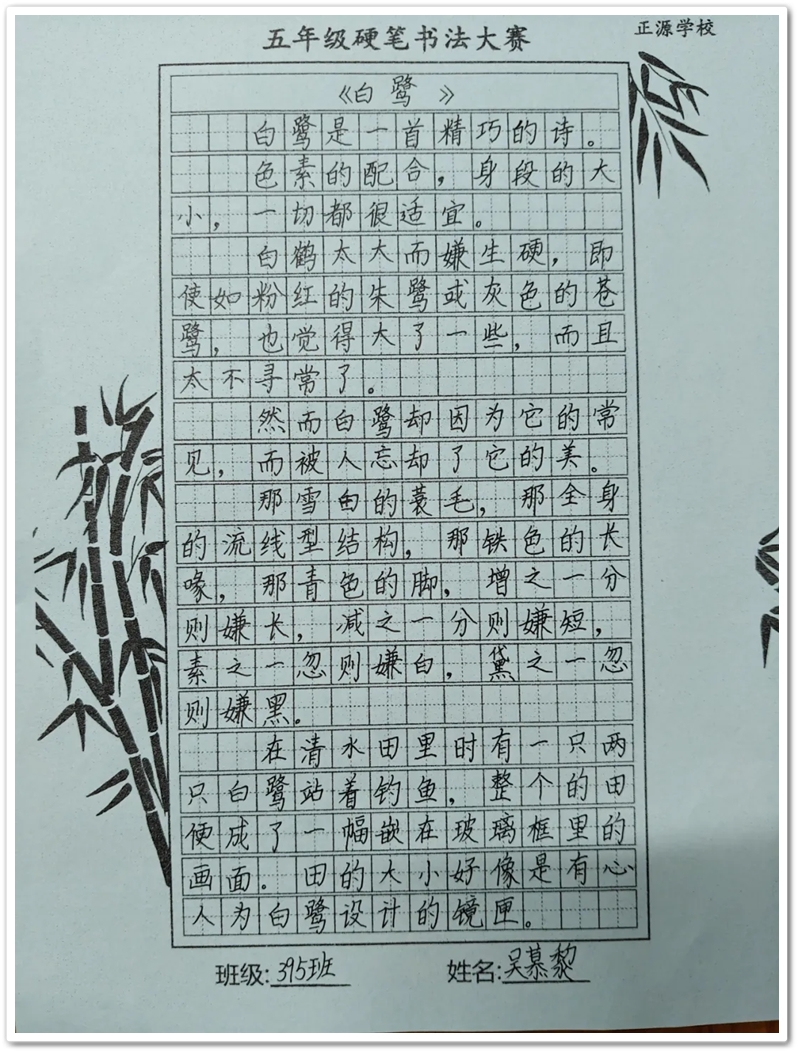 五年级硬笔书法大赛
正源学校
《白鹭》
白鹭是一首精巧的诗。
色素的配合，身段的大
小，一切都很适宜。
白鹤太大而嫌生硬，即
使如粉红的朱鹭或灰色的苍
鹭，也觉得大了一些，而且
太不寻常了。
然而白鹭却因为它的常
见，而被人忘却了它的美。
那雪白的蓑毛，那全身
的流线型结构，那铁色的长
喙，那青色的脚，增之一分
则嫌长，减之一分则嫌短，
素之一忽则嫌白，黛之一忽
则嫌黑。
在清水田里时有一只两
只白鹭站着钓鱼，整个的田
便成了一幅嵌在玻璃框里的
画面。田的大小好像是有心
人为白鹭设计的镜匣。
班级:395班 姓名:吴慕黎